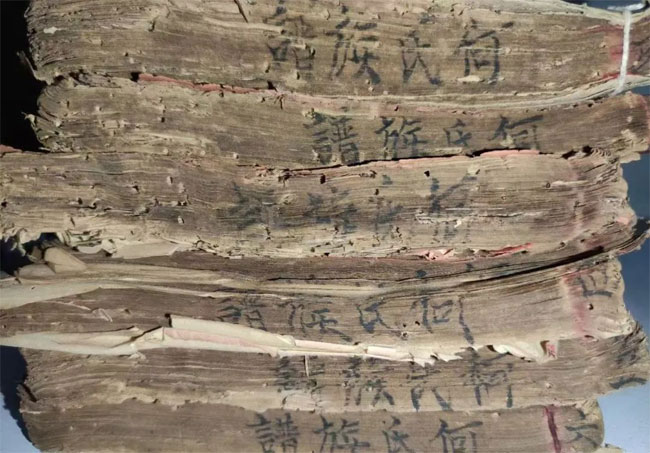 何氏族譜
何氏族譜
何氏族譜
何氏族譜
何氏族譜
何氏族譜 六